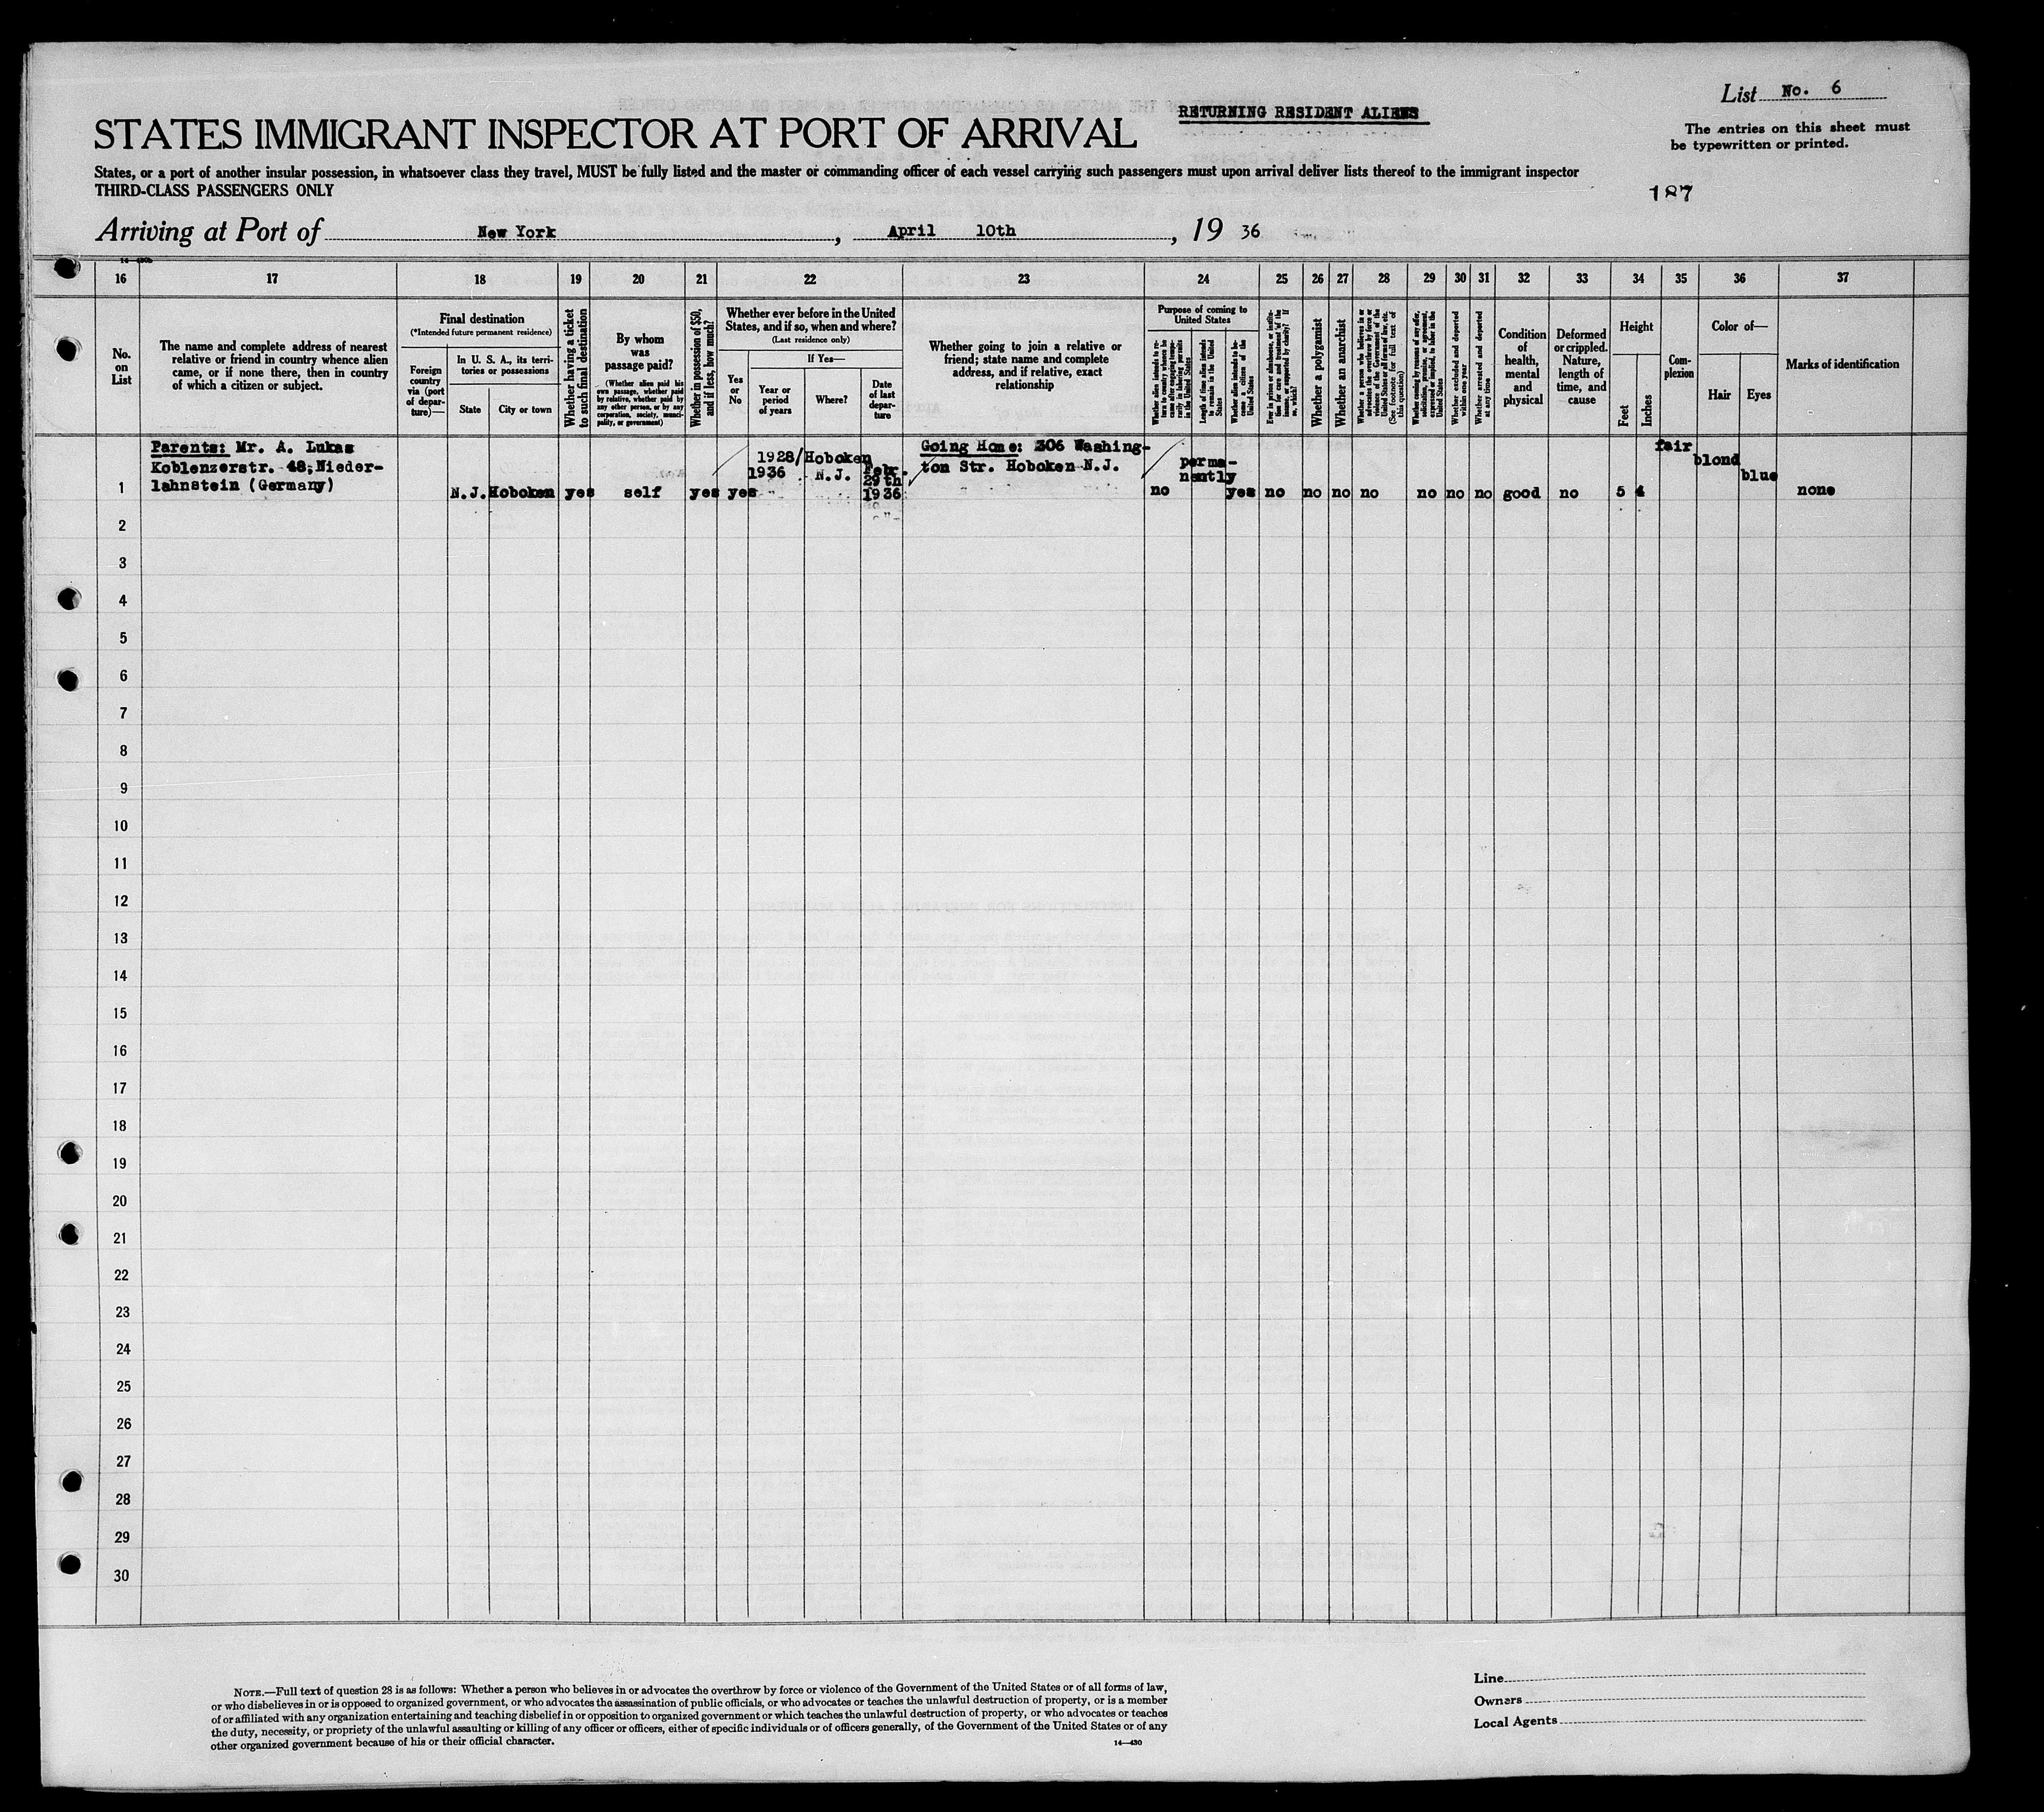 RETURNING RESIDENT ALIENS
List No. 6
STATES IMMIGRANT INSPECTOR AT PORT OF ARRIVAL
The entries on this sheet must
be typewritten or printed.
States, or a port of another insular possession, in whatsoever class they travel, MUST be fully listed and the master or commanding officer of each vessel carrying such passengers must upon arrival deliver lists thereof to the immigrant inspector
THIRD-CLASS PASSENGERS ONLY
187
Arriving at Port of New York, April 10th, 19 36
16 17 18 19 20 21 22 23 24 25 26 27 28 29 30 31 32 33 34 35 36 37
No.
on
List
The name and complete address of nearest
relative or friend in country whence alien
came, or if none there, then in country
of which a citizen or subject.
Final destination
(*Intended future permanent residence)
Foreign
country
via (port
of depar-
ture)—
In U. S. A., its terri-
tories or possessions
State
City or town
Whether having a ticket
to such final destination
By whom
was
passage paid?
(Whether alien paid his
own passage, whether paid
by relative, whether paid by
any other person, or by any
corporation, society, munici-
pality, or government)
Whether in possession of $50,
and if less, how much?
Whether ever before in the United
States, and if so, when and where?
(Last residence only)
Yes
or
No
If Yes—
Year or
period
of years
Where?
Date
of last
depar-
ture
Whether going to join a relative or
friend; state name and complete
address, and if relative, exact
relationship
Purpose of coming to
United States
Whether alien intends to re-
turn to country whence he
came after engaging tempo-
rarily in laboring pursuits
in the United States
Length of time alien intends
to remain in the United
States
Whether alien intends to be-
come a citizen of the
United States
Ever in prison or almshouse, or institu-
tion for care and treatment of the
insane, or supported by charity? If
so, which?
Whether a polygamist
Whether an anarchist
Whether a person who believes in or
advocates the overthrow by force or
violence of the Government of the
United States or all forms of law, etc.
(See footnote for full text of
this question)
Whether coming by reason of any offer,
solicitation, promise, or agreement,
expressed or implied, to labor in the
United States
Whether excluded and deported
within one year
Whether arrested and deported
at any time
Condition
of
health,
mental
and
physical
Deformed
or crippled.
Nature,
length of
time, and
cause
Height
Feet
Inches
Com-
plexion
Color of—
Hair
Eyes
Marks of identification
Parents: Mr. A. Lukas
Koblenzerstr. 48, Nieder-
lahnstein (Germany)
1 N.J. Hoboken yes self yes yes
1928/
1936
Hoboken
N.J.
Febr.
29th
1936
Going Home: 306 Washing-
ton Str. Hoboken N.J.
no
perma-
nently
yes no no no no no no no good no 5 4
fair
blond
blue
none
2
3
4
5
6
7
8
9
10
11
12
13
14
15
16
17
18
19
20
21
22
23
24
25
26
27
28
29
30
NOTE.—Full text of question 28 is as follows: Whether a person who believes in or advocates the overthrow by force or violence of the Government of the United States or of all forms of law,
or who disbelieves in or is opposed to organized government, or who advocates the assassination of public officials, or who advocates or teaches the unlawful destruction of property, or is a member
of or affiliated with any organization entertaining and teaching disbelief in or opposition to organized government or which teaches the unlawful destruction of property, or who advocates or teaches
the duty, necessity, or propriety of the unlawful assaulting or killing of any officer or officers, either of specific individuals or of officers generally, of the Government of the United States or of any
other organized government because of his or their official character.
14—430
Line
Owners
Local Agents